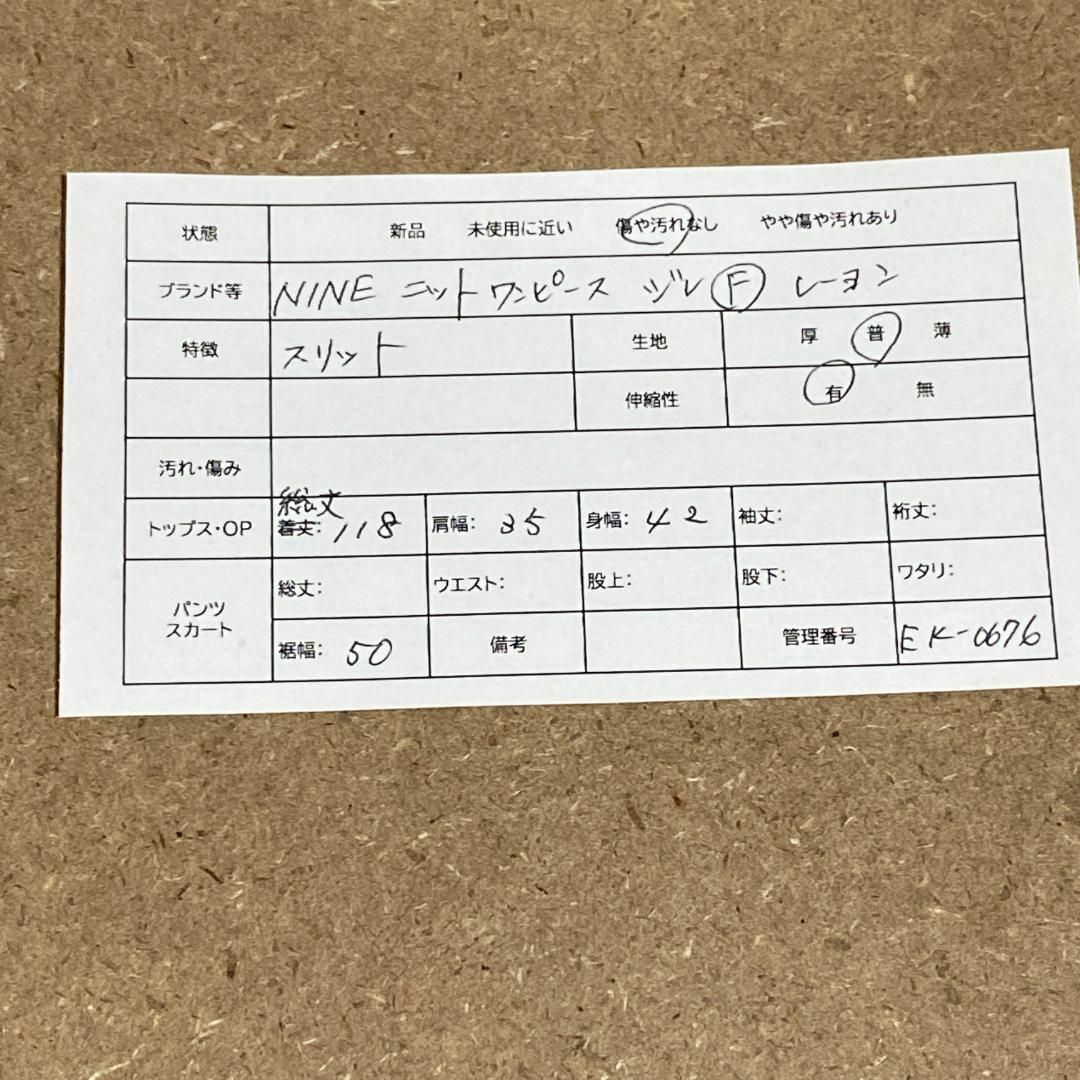 状態 新品 未使用に近い 傷や汚れなし やや傷や汚れあり
ブランド等 NINE ニットワンピース ジレ F レーヨン
特徴 スリット 生地 厚 普 薄
伸縮性 有 無
汚れ・傷み
総丈
トップス・OP 着丈: 118 肩幅: 35 身幅: 42 袖丈: 裄丈:
パンツ スカート 総丈: ウエスト: 股上: 股下: ワタリ:
裾幅: 50 備考 管理番号 EK-0676